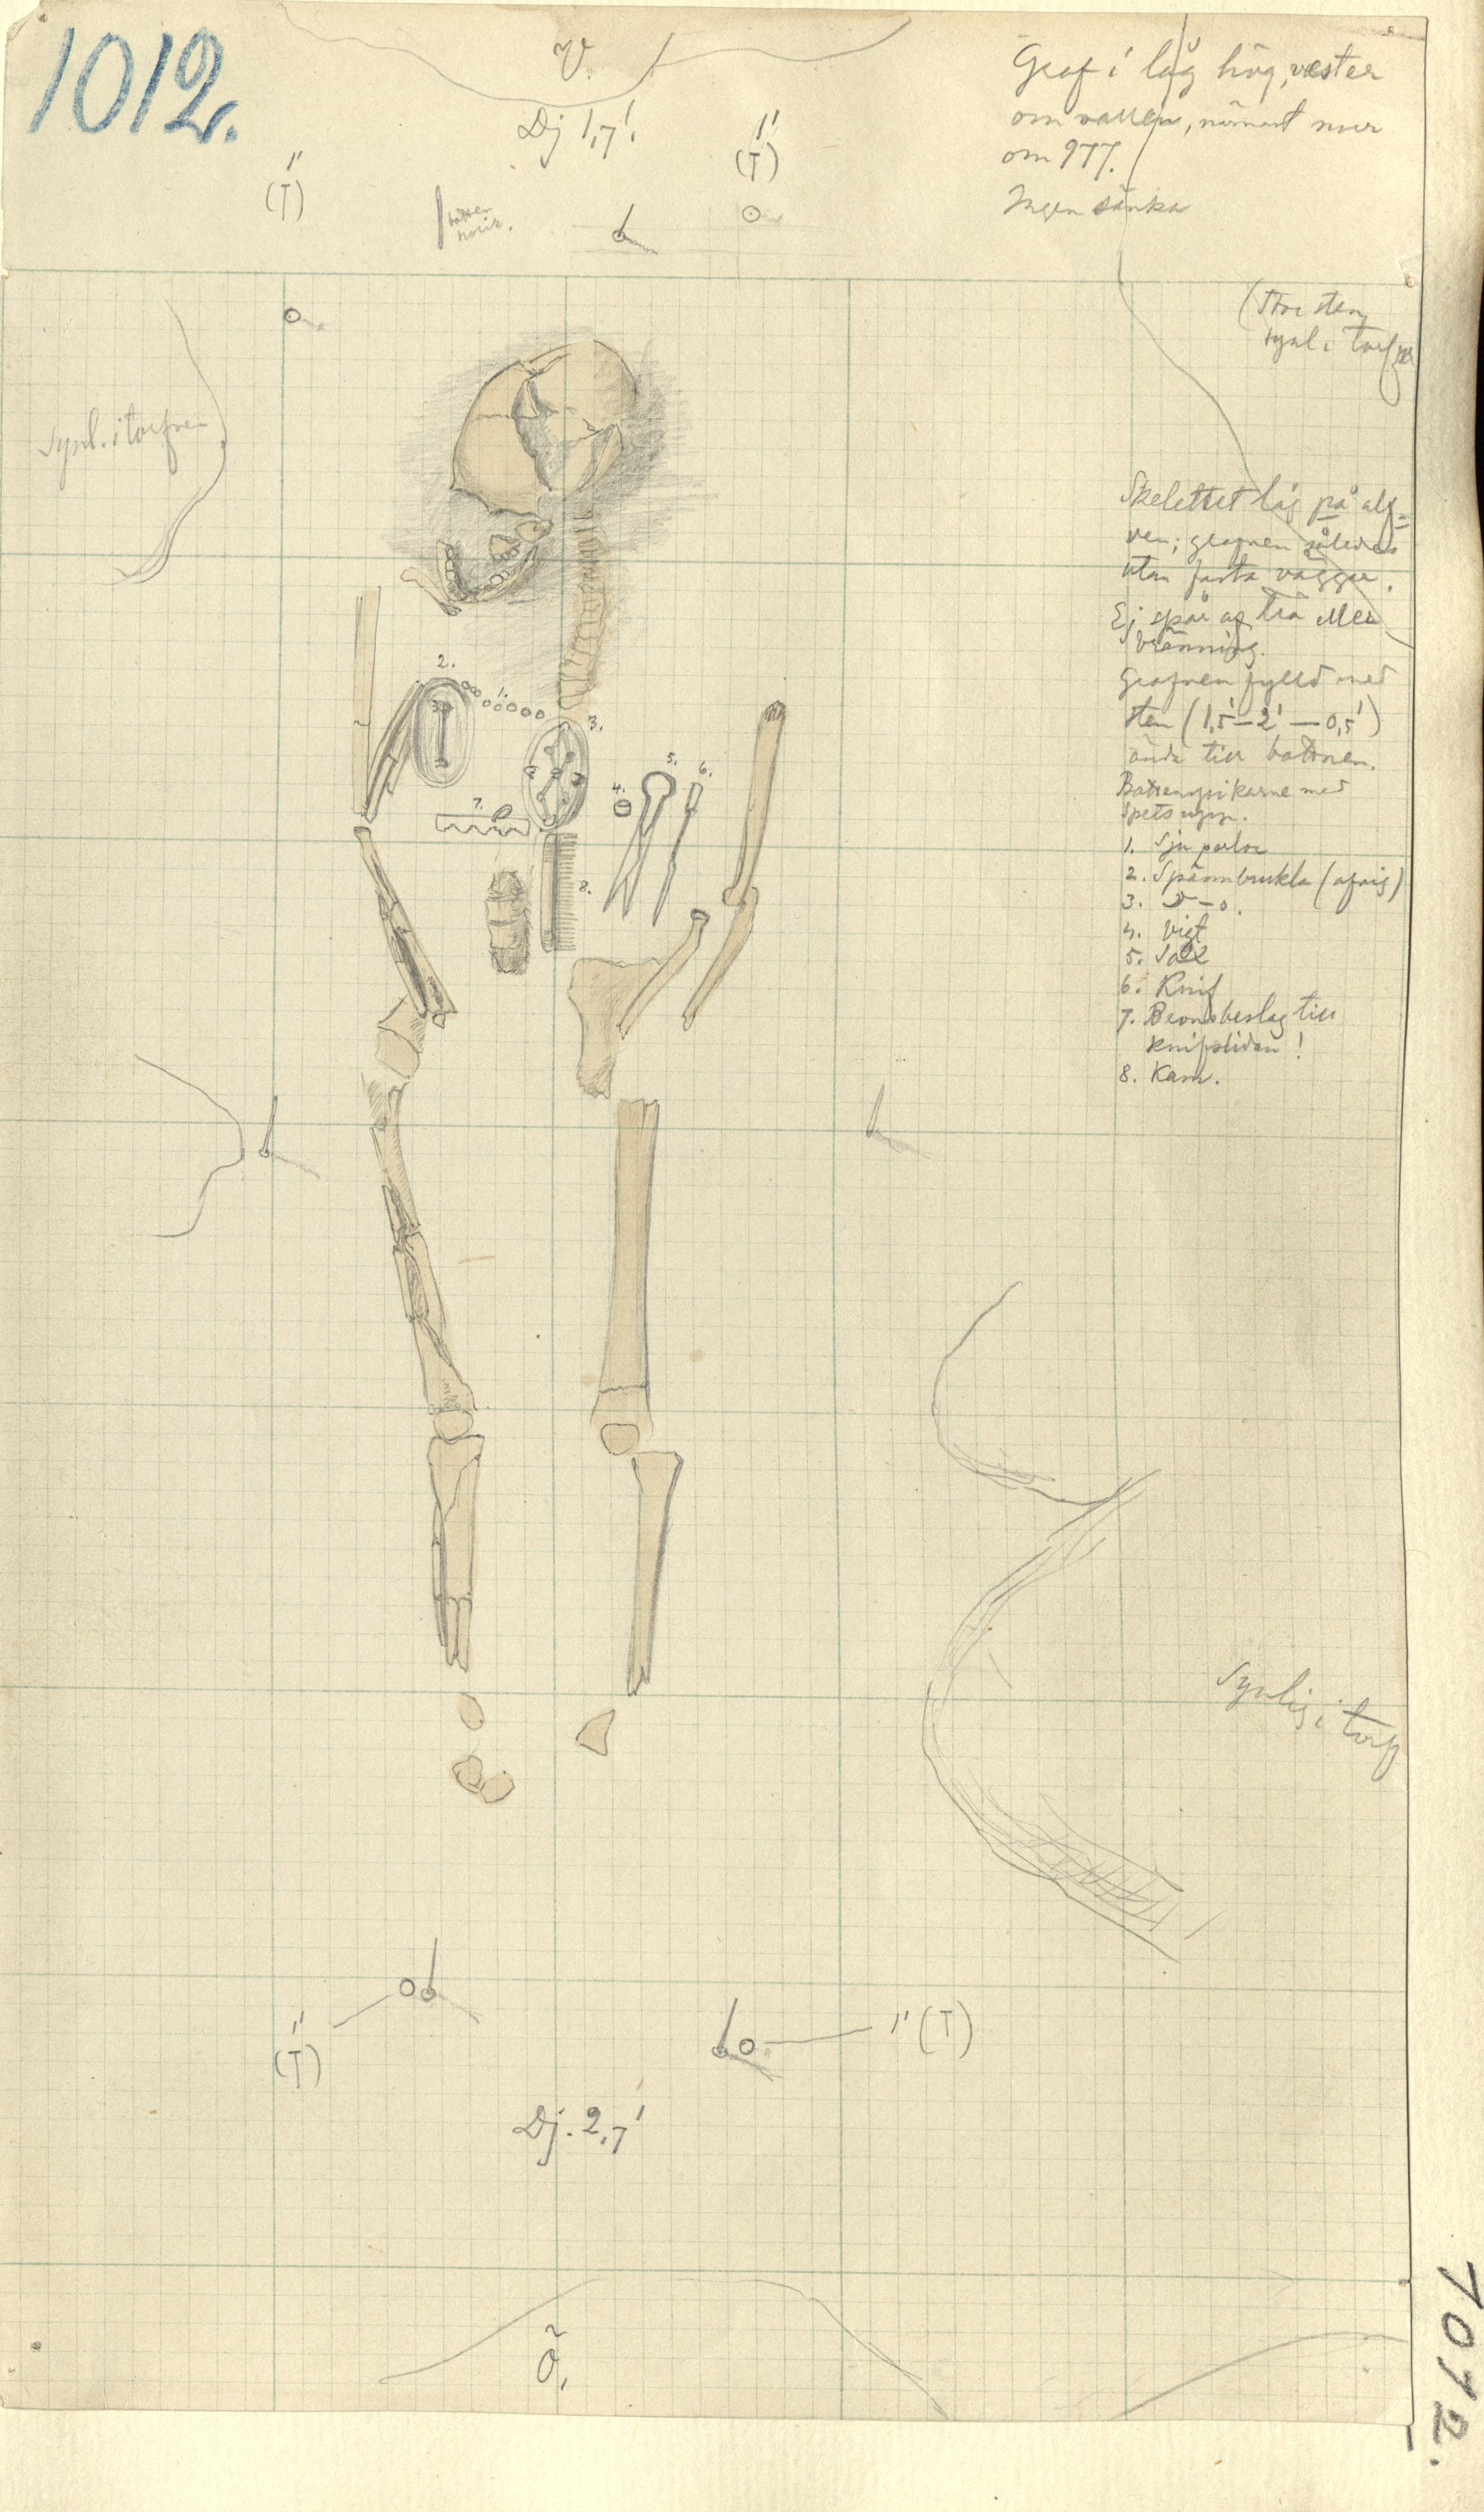 1012.
V.
Dj 1,7'.
1'
(T)
1'
(T)
botten
Graf i låg hög, vester
om vallen, närmast norr
om 977.
Ingen sänka
(Stor sten
synl i torfven
Synl. i torfven
Skelettet låg på alf-
ven; grafven således
utan fasta väggar.
Ej spår af trä eller
bränning.
Grafven fylld med
sten (1,5'–2' – 0,5')
ända till bottnen.
Bottenspikarne med
spets upp.
1. Sju perlor
2. Spännbuckla (afvig)
3. D–o.
4. Vigt
5. Sax
6. Knif
7. Bronsbeslag till
knifslidan!
8. Kam.
2.
1.
3.
4.
5.
6.
7.
8.
Synlig i torf
1'
(T)
1' (T)
Dj. 2,7'
Ö.
1012.